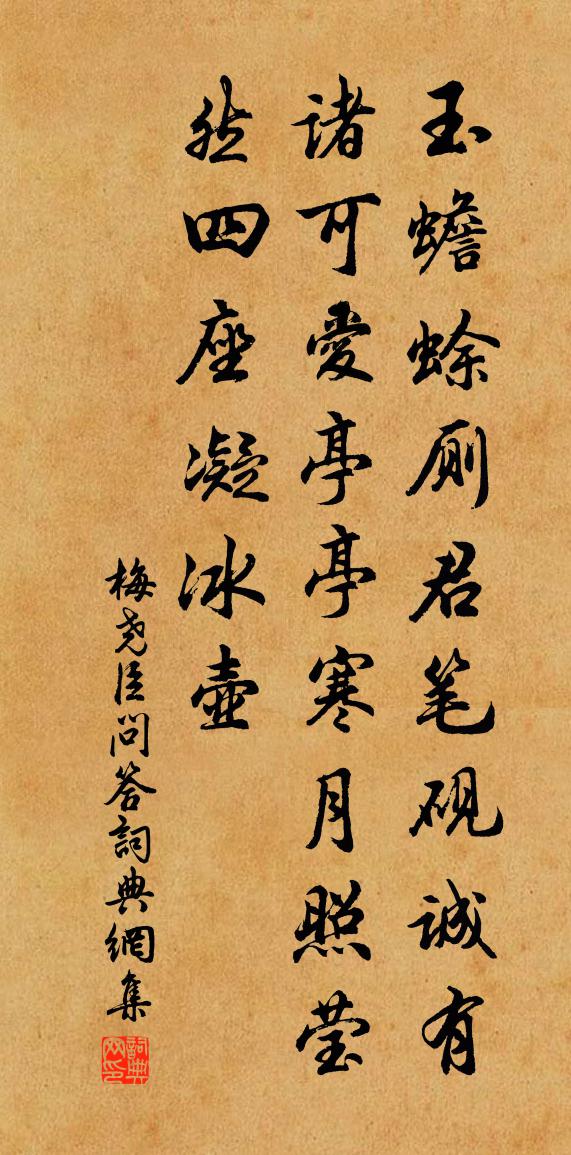 玉蟾蜍厕君笔砚诚有
诸可爱亭亭寒月照莹
然四座凝冰壶
梅尧臣问答詞典網集
詞典
网印